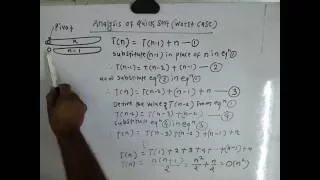 Pivot
Analysis of Quick Sort (Worst case)
n
n-1
T(n) = T(n-1) + n — ①
Substitute (n-1) in place of n in eqn ①
∴ T(n-1) = T(n-2) + (n-1) — ②
now substitute eqn ② in eqn ①
T(n) = T(n-2) + (n-1) + n — ③
Derive the value of T(n-2) from eqn ①
T(n-2) = T(n-3) + (n-2) — ④
Substitute eqn ④ in eqn ③
T(n) = T(n-3) + (n-2) + (n-1) + n
T(n) = 1 + 2 + 3 + 4 + ... + (n-1) + n
T(n) = n(n+1)/2 = n²/2 + n/2 = O(n²)